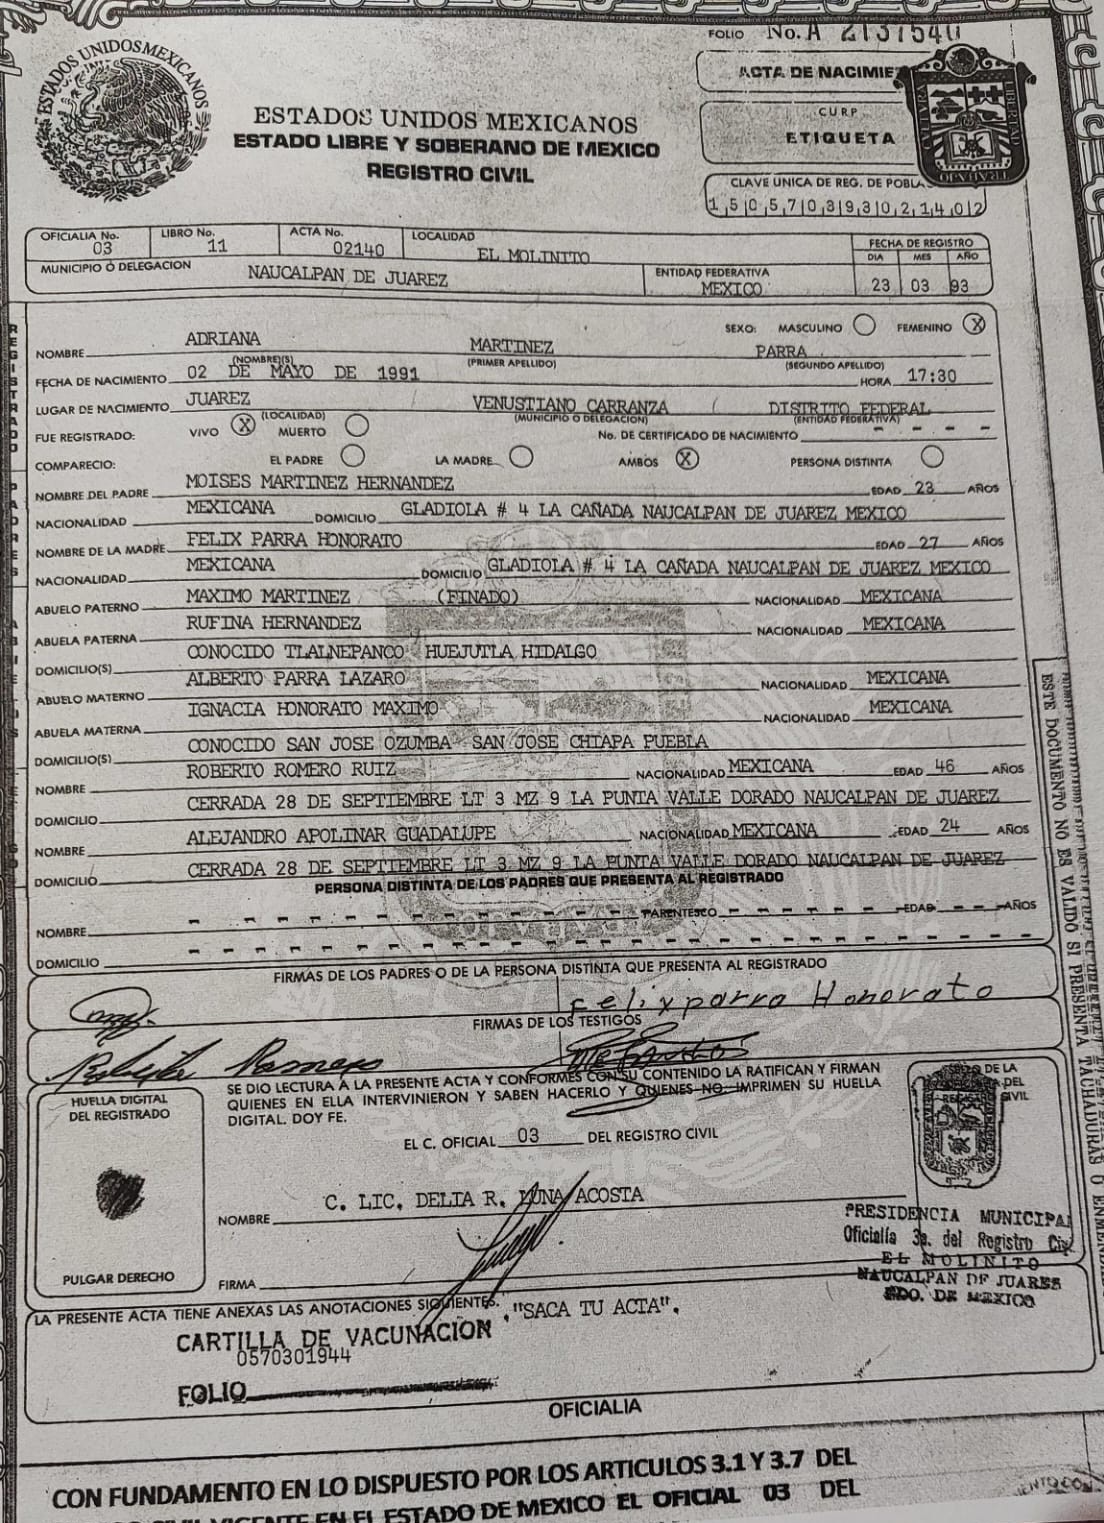 FOLIO No. A 2137540
ESTADOS UNIDOS MEXICANOS
ACTA DE NACIMIE
CURP
ETIQUETA
ESTADOS UNIDOS MEXICANOS
ESTADO LIBRE Y SOBERANO DE MEXICO
REGISTRO CIVIL
CLAVE UNICA DE REG. DE POBLA
150570393021402
OFICIALIA No. 03 LIBRO No. 11 ACTA No. 02140 LOCALIDAD EL MOLINITO FECHA DE REGISTRO
DIA MES AÑO
MUNICIPIO O DELEGACION NAUCALPAN DE JUAREZ ENTIDAD FEDERATIVA MEXICO 23 03 93
SEXO: MASCULINO FEMENINO X
NOMBRE ADRIANA MARTINEZ PARRA
(NOMBRE(S) (PRIMER APELLIDO) (SEGUNDO APELLIDO)
FECHA DE NACIMIENTO 02 DE MAYO DE 1991 HORA 17:30
LUGAR DE NACIMIENTO JUAREZ VENUSTIANO CARRANZA DISTRITO FEDERAL
(LOCALIDAD) (MUNICIPIO O DELEGACION) (ENTIDAD FEDERATIVA)
FUE REGISTRADO: VIVO X MUERTO No. DE CERTIFICADO DE NACIMIENTO - - - -
COMPARECIO: EL PADRE LA MADRE AMBOS X PERSONA DISTINTA
NOMBRE DEL PADRE MOISES MARTINEZ HERNANDEZ EDAD 23 AÑOS
NACIONALIDAD MEXICANA DOMICILIO GLADIOLA # 4 LA CAÑADA NAUCALPAN DE JUAREZ MEXICO
NOMBRE DE LA MADRE FELIX PARRA HONORATO EDAD 27 AÑOS
NACIONALIDAD MEXICANA DOMICILIO GLADIOLA # 4 LA CAÑADA NAUCALPAN DE JUAREZ MEXICO
ABUELO PATERNO MAXIMO MARTINEZ (FINADO) NACIONALIDAD MEXICANA
ABUELA PATERNA RUFINA HERNANDEZ NACIONALIDAD MEXICANA
DOMICILIO(S) CONOCIDO TLALNEPANCO HUEJUTLA HIDALGO
ABUELO MATERNO ALBERTO PARRA LAZARO NACIONALIDAD MEXICANA
ABUELA MATERNA IGNACIA HONORATO MAXIMO NACIONALIDAD MEXICANA
DOMICILIO(S) CONOCIDO SAN JOSE OZUMBA SAN JOSE CHIAPA PUEBLA
NOMBRE ROBERTO ROMERO RUIZ NACIONALIDAD MEXICANA EDAD 46 AÑOS
DOMICILIO CERRADA 28 DE SEPTIEMBRE LT 3 MZ 9 LA PUNTA VALLE DORADO NAUCALPAN DE JUAREZ
NOMBRE ALEJANDRO APOLINAR GUADALUPE NACIONALIDAD MEXICANA EDAD 24 AÑOS
DOMICILIO CERRADA 28 DE SEPTIEMBRE LT 3 MZ 9 LA PUNTA VALLE DORADO NAUCALPAN DE JUAREZ
PERSONA DISTINTA DE LOS PADRES QUE PRESENTA AL REGISTRADO
NOMBRE PARENTESCO EDAD AÑOS
DOMICILIO
FIRMAS DE LOS PADRES O DE LA PERSONA DISTINTA QUE PRESENTA AL REGISTRADO
Felix parra Honorato
FIRMAS DE LOS TESTIGOS
HUELLA DIGITAL
DEL REGISTRADO
SE DIO LECTURA A LA PRESENTE ACTA Y CONFORMES CON SU CONTENIDO LA RATIFICAN Y FIRMAN
QUIENES EN ELLA INTERVINIERON Y SABEN HACERLO Y QUIENES NO IMPRIMEN SU HUELLA
DIGITAL. DOY FE.
DE LA
DEL
CIVIL
EL C. OFICIAL 03 DEL REGISTRO CIVIL
NOMBRE C. LIC. DELIA R. LUNA ACOSTA
PULGAR DERECHO
FIRMA
PRESIDENCIA MUNICIPAL
Oficialía 3a. del Registro Civ
EL MOLINITO
NAUCALPAN DE JUARES
EDO. DE MEXICO
LA PRESENTE ACTA TIENE ANEXAS LAS ANOTACIONES SIGUIENTES. "SACA TU ACTA".
CARTILLA DE VACUNACION
0570301944
FOLIO
OFICIALIA
ESTE DOCUMENTO NO ES VALIDO SI PRESENTA TACHADURAS O ENMENDA
CON FUNDAMENTO EN LO DISPUESTO POR LOS ARTICULOS 3.1 Y 3.7 DEL
CIVIL VIGENTE EN EL ESTADO DE MEXICO EL OFICIAL 03 DEL